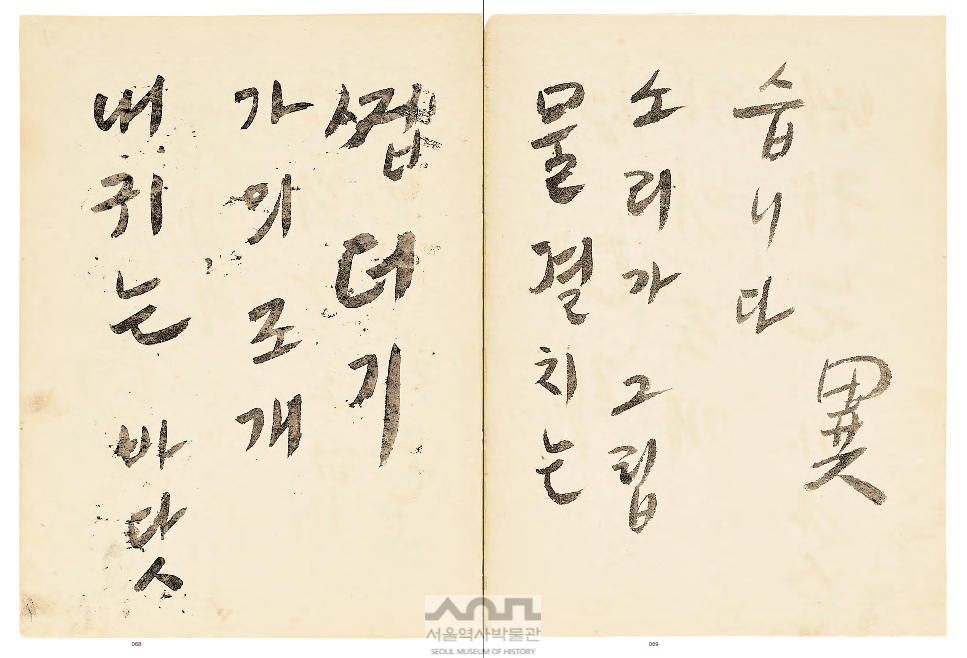 내귀는 바닷
가의 조개
ᄭᅥᆸ더기
물결치는
소리가 그립
습니다
異
068
069
서울역사박물관
SEOUL MUSEUM OF HISTORY